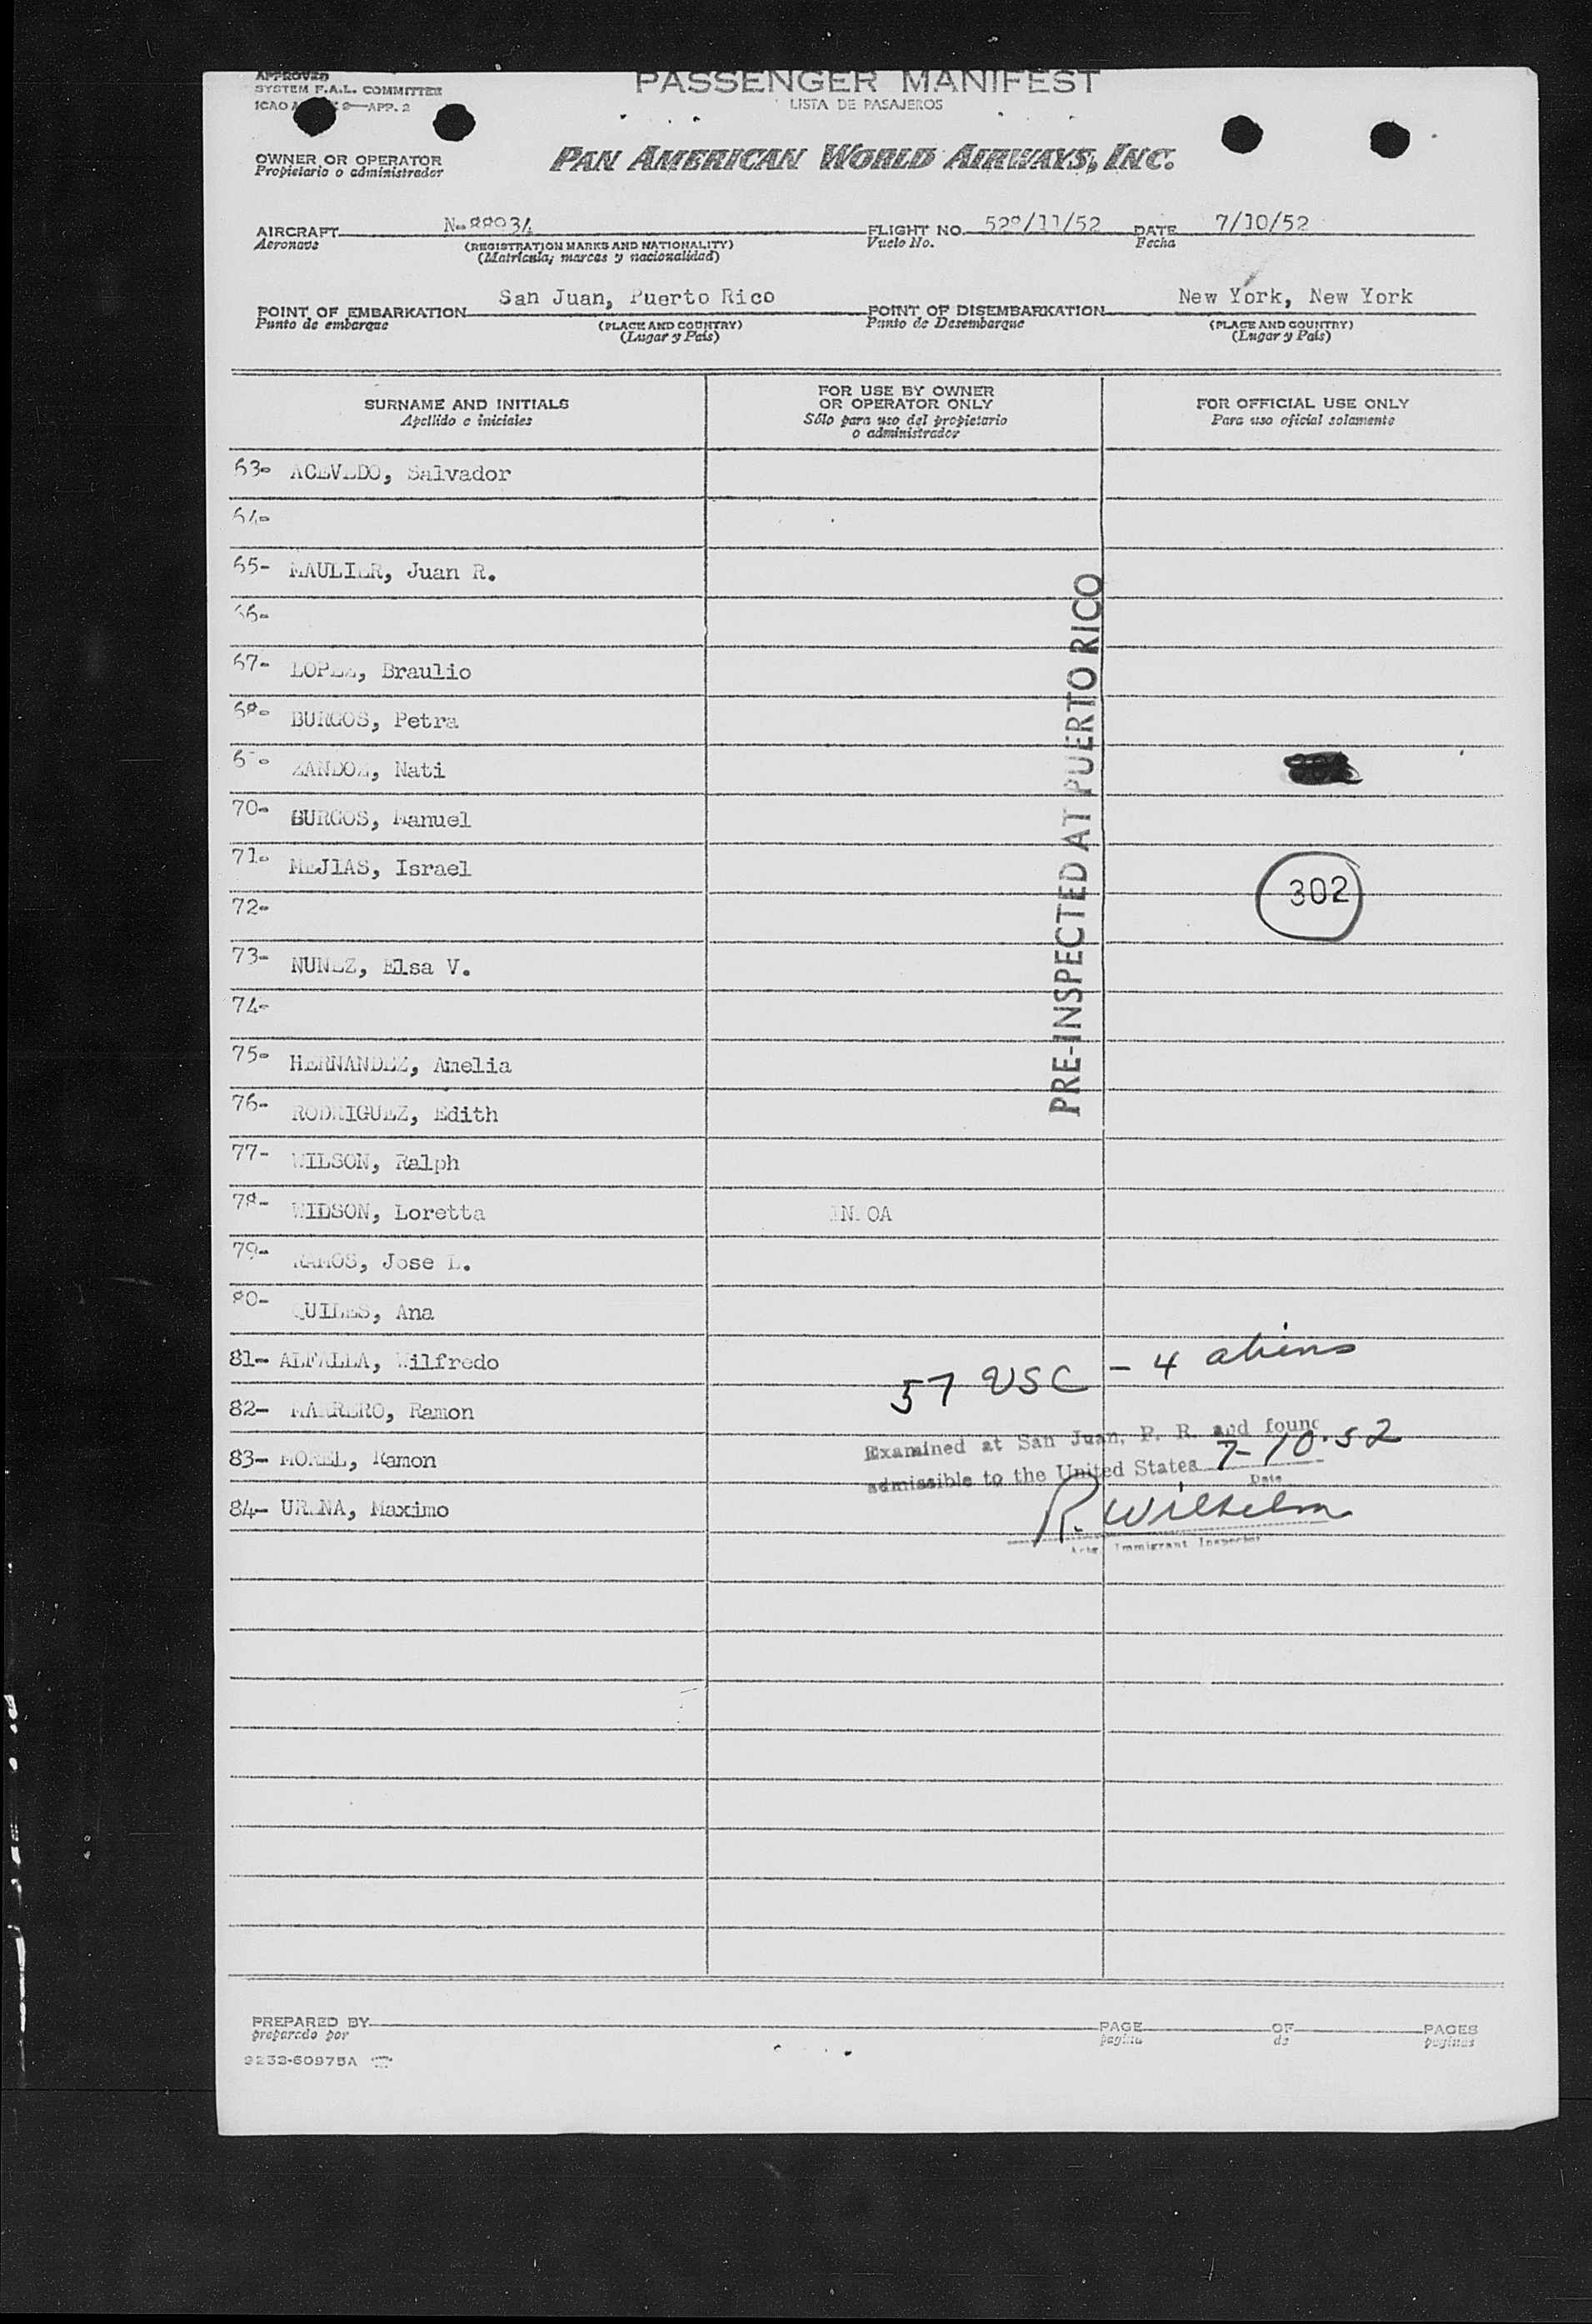 APPROVED
SYSTEM F.A.L. COMMITTEE
ICAO 9—APP. 2
PASSENGER MANIFEST
LISTA DE PASAJEROS
OWNER OR OPERATOR
Propietario o administrador
PAN AMERICAN WORLD AIRWAYS, INC.
AIRCRAFT N-88934 FLIGHT NO. 528/11/52 DATE 7/10/52
Aeronave (REGISTRATION MARKS AND NATIONALITY) Vuelo No. Fecha
(Matrícula; marcas y nacionalidad)
POINT OF EMBARKATION San Juan, Puerto Rico POINT OF DISEMBARKATION New York, New York
Punto de embarque (PLACE AND COUNTRY) Punto de Desembarque (PLACE AND COUNTRY)
(Lugar y País) (Lugar y País)
SURNAME AND INITIALS
Apellido e iniciales
FOR USE BY OWNER
OR OPERATOR ONLY
Sólo para uso del propietario
o administrador
FOR OFFICIAL USE ONLY
Para uso oficial solamente
63- ACEVEDO, Salvador
64-
65- MAULIER, Juan R.
66-
67- LOPEZ, Braulio
68- BURGOS, Petra
69- ZANDOZ, Nati
70- BURGOS, Manuel
71- MEJIAS, Israel
302
72-
73- NUNEZ, Elsa V.
74-
75- HERNANDEZ, Amelia
76- RODRIGUEZ, Edith
77- WILSON, Ralph
78- WILSON, Loretta
79- RAMOS, Jose L.
80- QUILES, Ana
81- ALFALLA, Wilfredo
82- MARRERO, Ramon
83- MOREL, Ramon
84- URENA, Maximo
PRE-INSPECTED AT PUERTO RICO
57 USC - 4 aliens
Examined at San Juan, P. R. and found
admissible to the United States 7-10-52
Date
R. Wilhelm
Actg. Immigrant Inspector
PREPARED BY PAGE OF PAGES
preparado por pagina de paginas
9233-60975A